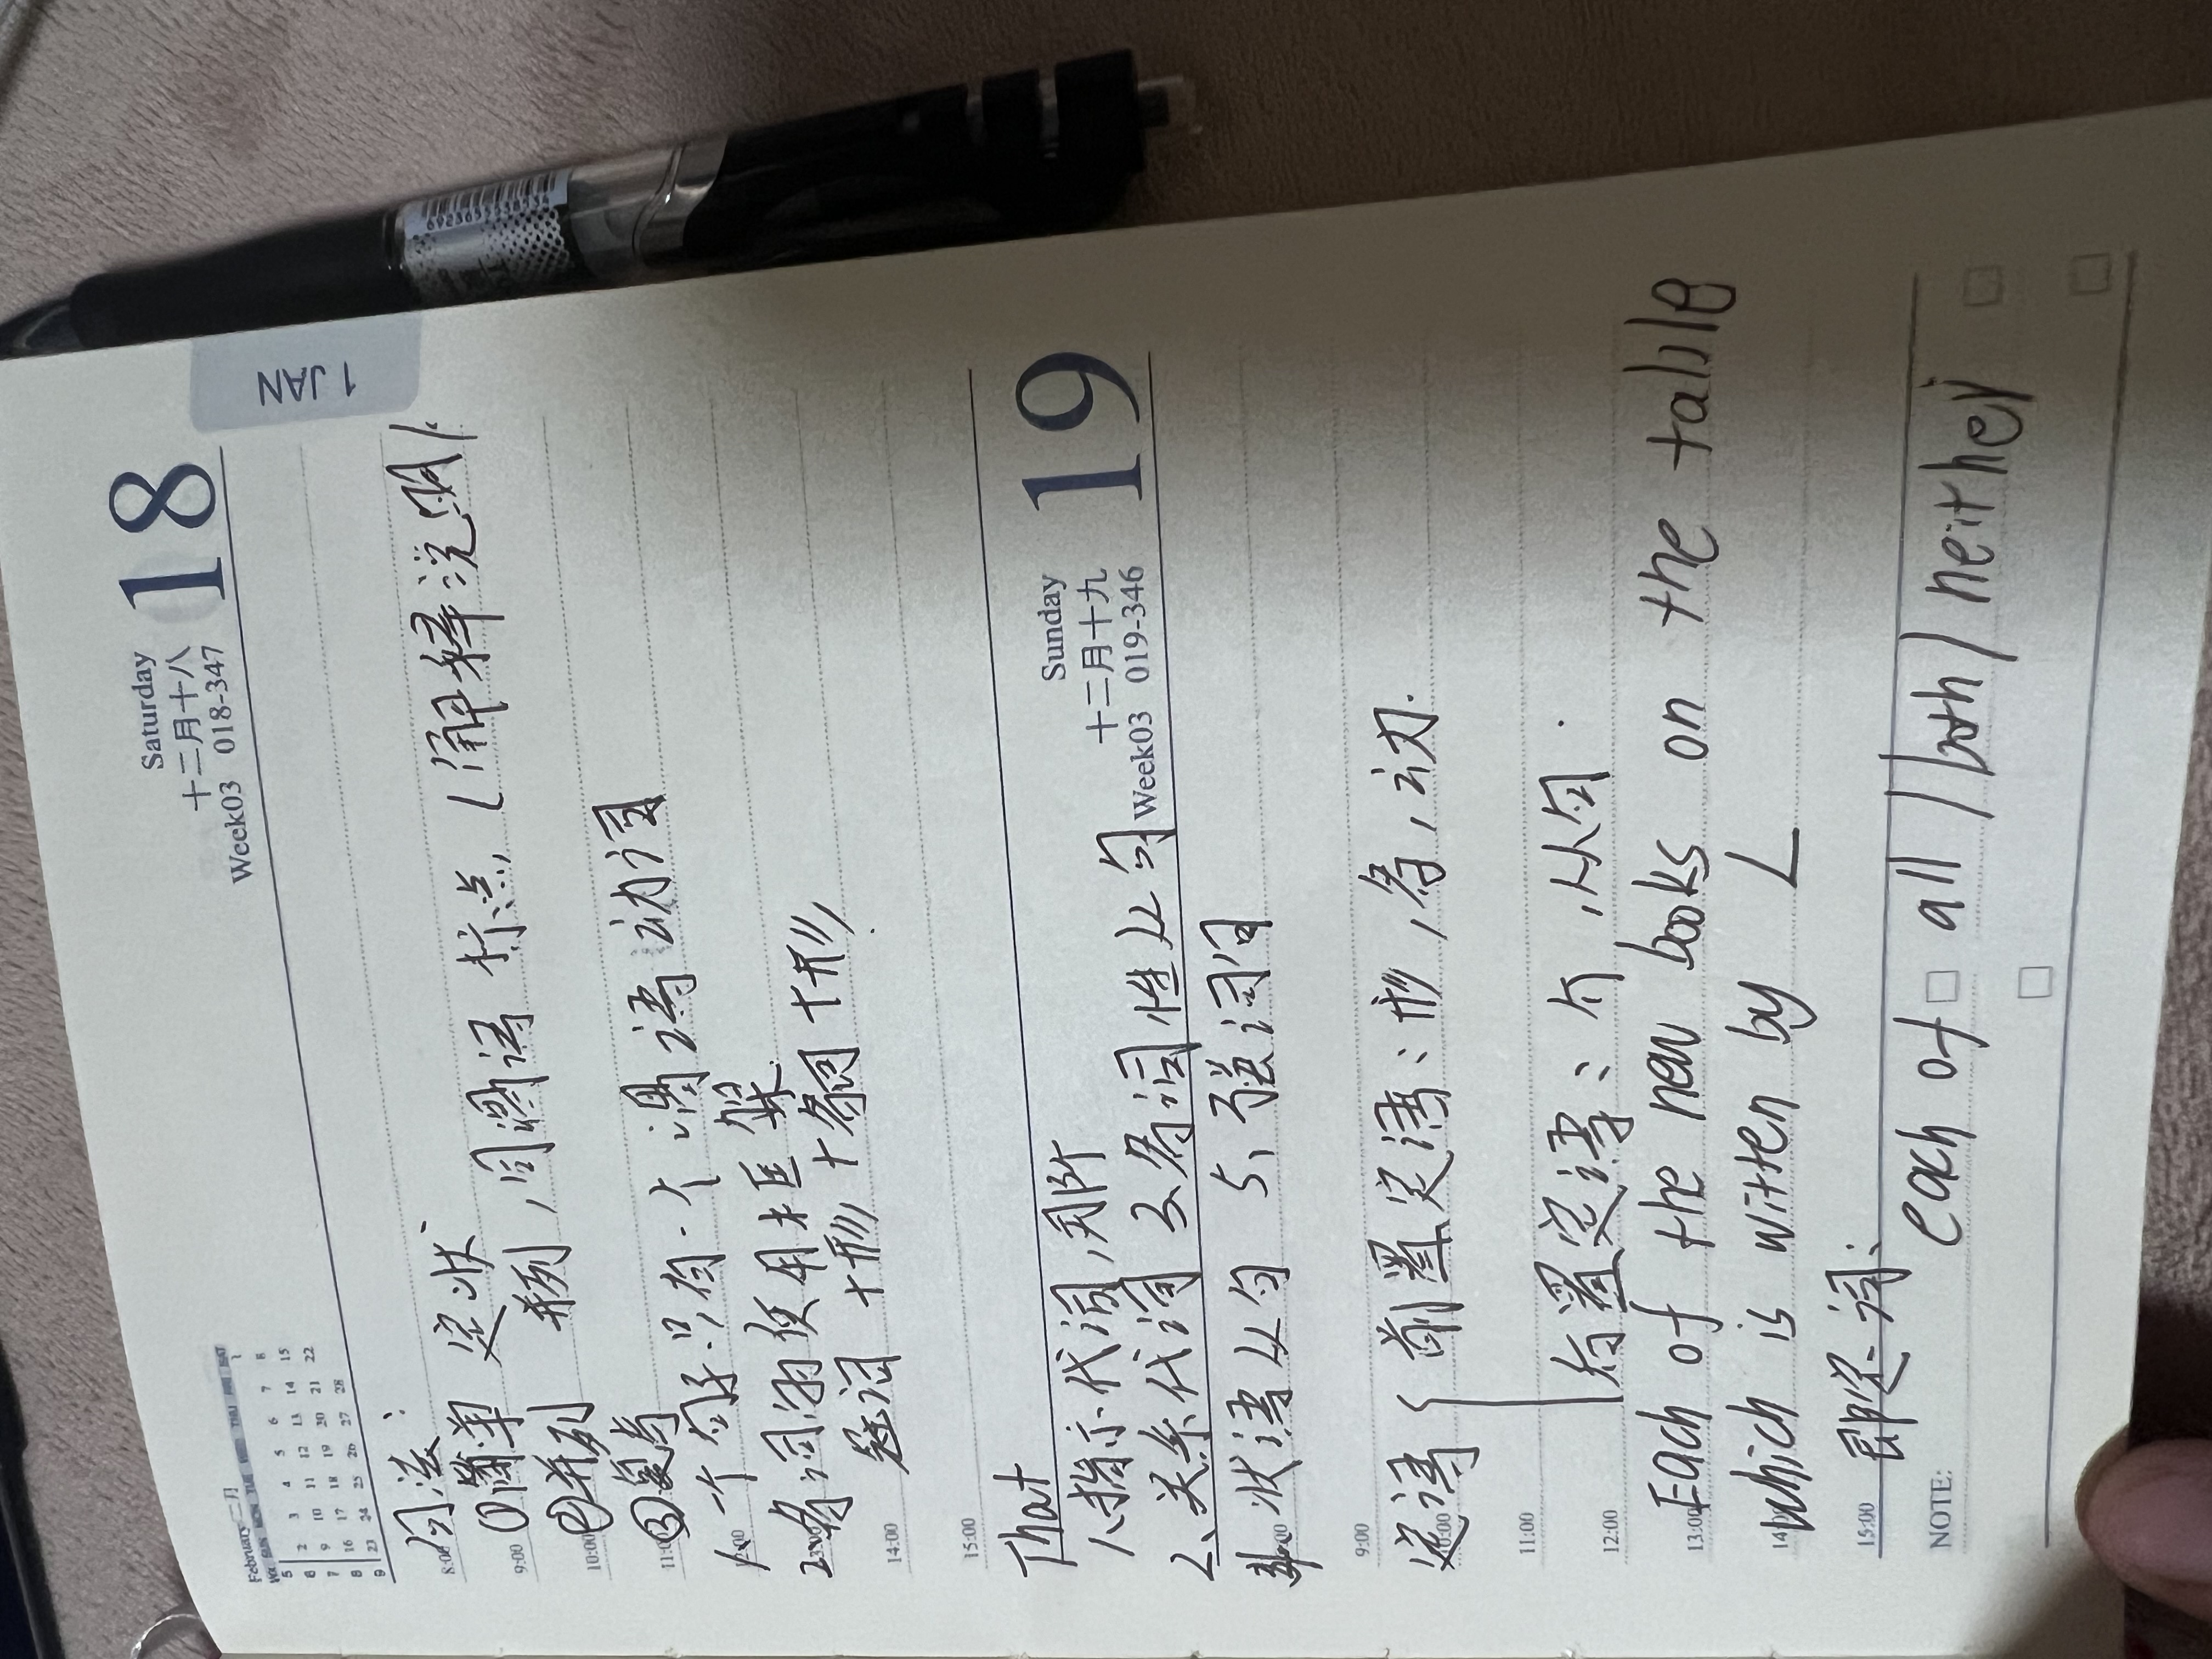 February 二月
WK SUN MON TUE WED THU FRI SAT
5 1
6 2 3 4 5 6 7 8
7 9 10 11 12 13 14 15
8 16 17 18 19 20 21 22
9 23 24 25 26 27 28
Saturday
十二月十八
Week03 018-347
18
1
JAN
句法:
8:00
①简单 定状
9:00
②并列 并列,同谓语 标点,(解释说明)
10:00
③复句
11:00
1、一个句子只有一个谓语动词
12:00
2、名词的使用框架
13:00
冠词+形+名词+形
14:00
15:00
Sunday
十二月十九
Week03 019-346
19
That
1、指示代词,那个
2、关系代词 3、名词性从句
4、状语从句 5、强调句
9:00
定语{前置定语:形,名,动.
10:00
11:00
后置定语:介,从句.
12:00
Each of the new books on the table
13:00
which is witten by L
14:00
限定词:
15:00
NOTE:
each of all / both / neither